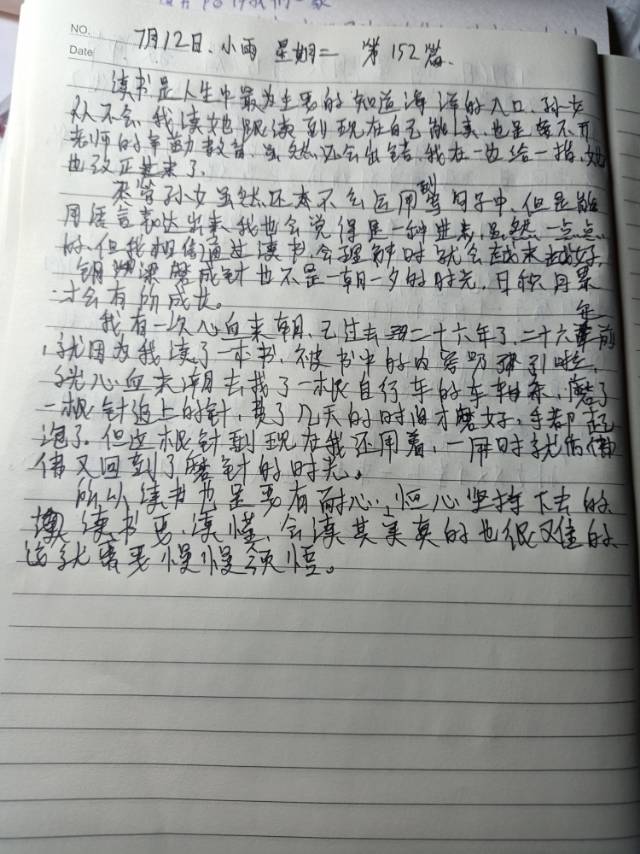 NO.
Date
7月12日、小雨 星期二 第152篇.
读书是人生中最为主要的知道海洋的入口.孙女
从不会,我读她跟读到现在自己能读,也是离不开
老师的辛勤教育.虽然还会出错,我在一边给一指,她
也改正过来了.
不管孙女虽然还不会运用到写句子中,但是能
用语言表达出来,我也会说得是一种进步,虽然一点点
的,但我相信通过读书,会理解时就会越来越好.
钢 磨成针也不是一朝一夕的时光,日积月累
才会有所成长。
我有一次心血来潮,已过去二十六年了.二十六年前
,就因为我读了一本书,不被书中的内容吸引啦,
就心血来潮去找了一根自行车的车条,磨了
一根针 上的针,费了几天的时间才磨好,手都起
泡了.但这根针到现在我还用着,一用时就仿佛
又回到了磨针的时光。
所以读书也是要有耐心、恒心坚持下去的
读书要读懂,会读其 真的也很难的
这就需要慢慢领悟。